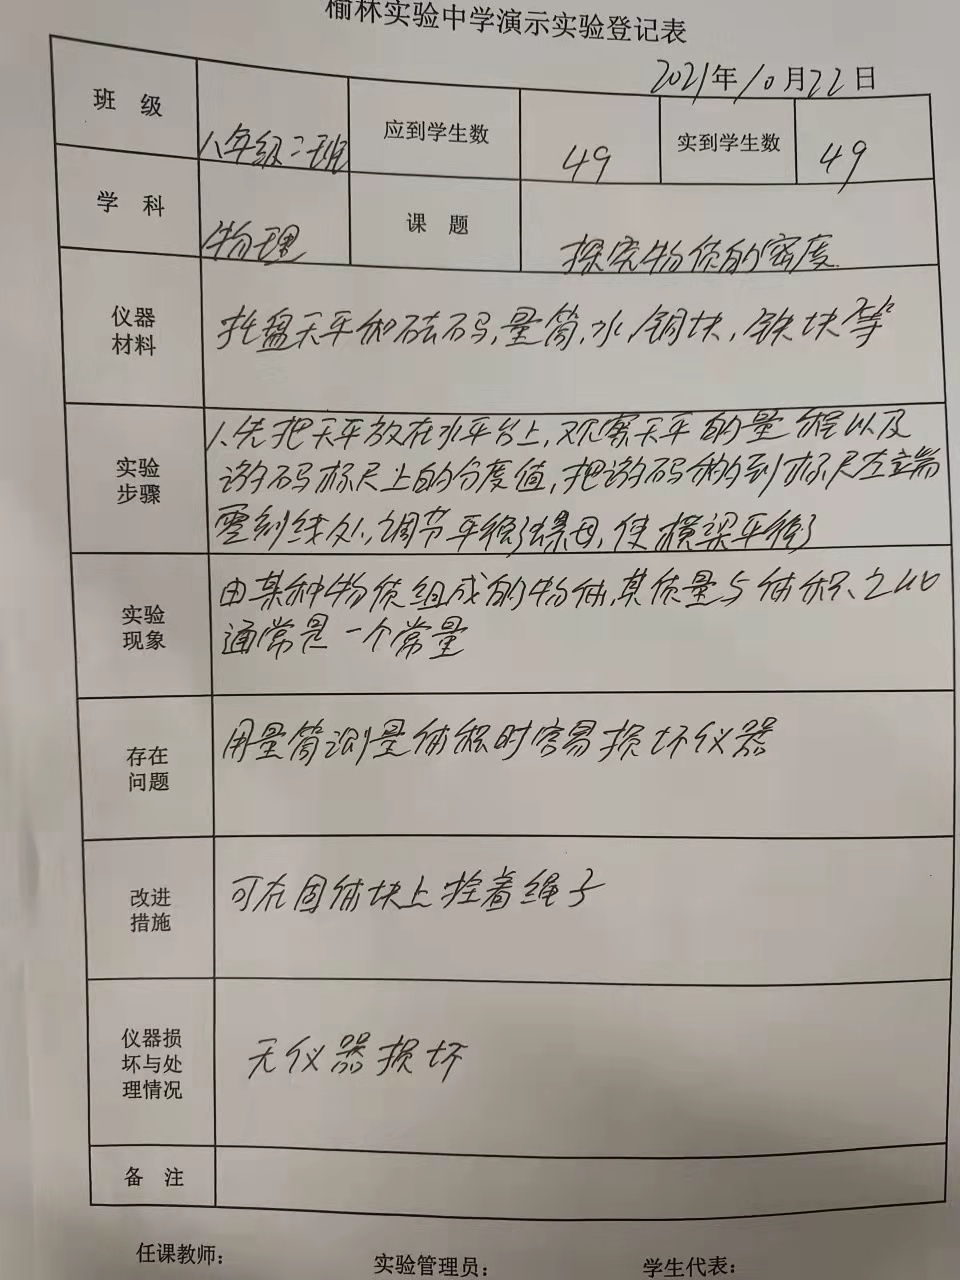 榆林实验中学演示实验登记表
2021年10月22日
班 级 八年级二班 应到学生数 49 实到学生数 49
学 科 物理 课 题 探究物质的密度
仪器
材料
托盘天平和砝码,量筒,水,铜块,铁块等
实验
步骤
1.先把天平放在水平台上,观察天平的量程以及
游码标尺上的分度值,把游码拨到标尺左端
零刻线处,调节平衡螺母,使横梁平衡
实验
现象
由某种物质组成的物体,其质量与体积之比
通常是一个常量
存在
问题
用量筒测量体积时容易损坏仪器
改进
措施
可在固体块上拴着绳子
仪器损
坏与处
理情况
无仪器损坏
备 注
任课教师: 实验管理员: 学生代表: